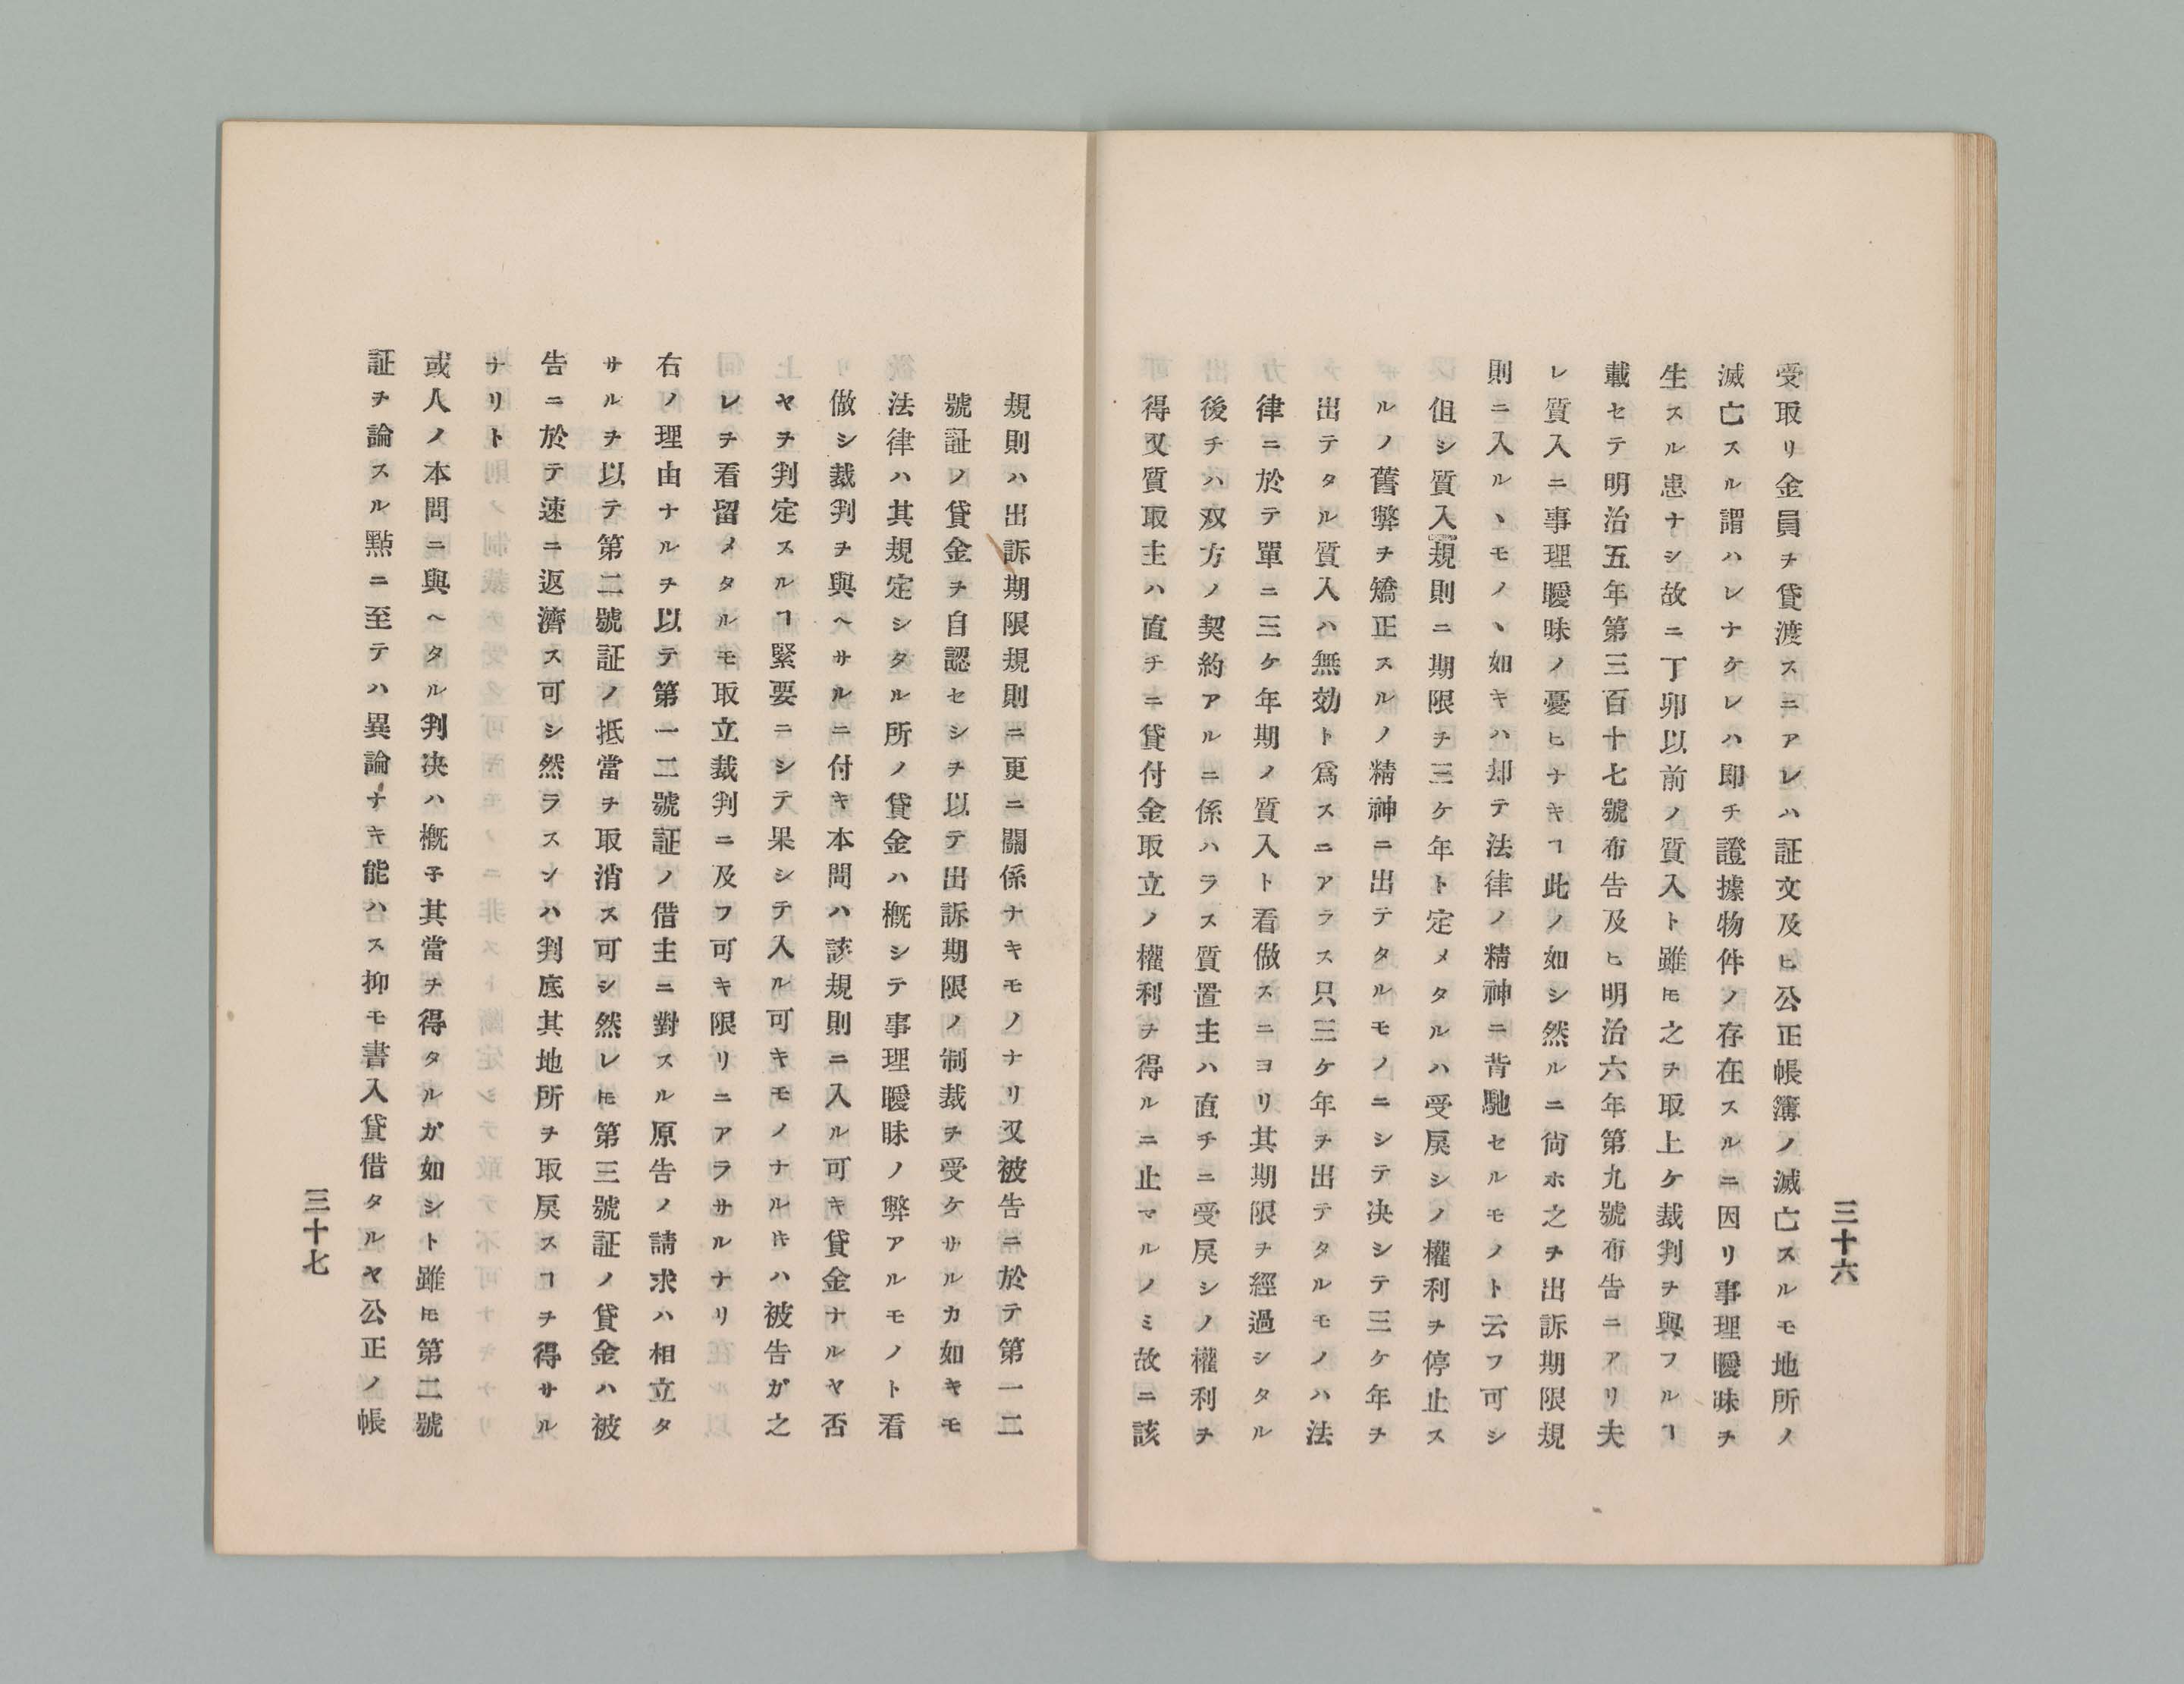 三十六
受取リ金員ヲ貸渡スニアレハ証文及ヒ公正帳簿ノ滅亡スルモ地所ノ
滅亡スル謂ハレナケレハ即チ證據物件ノ存在スルニ因リ事理曖昧ヲ
生スル患ナシ故ニ丁卯以前ノ質入ト雖𪜈之ヲ取上ケ裁判ヲ與フルヿ
載セテ明治五年第三百十七號布告及ヒ明治六年第九號布告ニアリ夫
レ質入ニ事理曖昧ノ憂ヒナキヿ此ノ如シ然ルニ尙ホ之ヲ出訴期限規
則ニ入ルヽモノヽ如キハ却テ法律ノ精神ニ背馳セルモノト云フ可シ
伹シ質入規則ニ期限ヲ三ケ年ト定メタルハ受戻シノ權利ヲ停止ス
ルノ舊弊ヲ矯正スルノ精神ニ出テタルモノニシテ决シテ三ケ年ヲ
出テタル質入ハ無効ト爲スニアラス只三ケ年ヲ出テタルモノハ法
律ニ於テ單ニ三ケ年期ノ質入ト看做スニヨリ其期限ヲ經過シタル
後チハ双方ノ契約アルニ係ハラス質置主ハ直チニ受戻シノ權利ヲ
得又質取主ハ直チニ貸付金取立ノ權利ヲ得ルニ止マルノミ故ニ該
規則ハ出訴期限規則ニ更ニ關係ナキモノナリ又被告ニ於テ第一二
號証ノ貸金ヲ自認セシヲ以テ出訴期限ノ制裁ヲ受ケサルカ如キモ
法律ハ其規定シタル所ノ貸金ハ概シテ事理曖昧ノ弊アルモノト看
做シ裁判ヲ與ヘサルニ付キ本問ハ該規則ニ入ル可キ貸金ナルヤ否
ヤヲ判定スルヿ緊要ニシテ果シテ入ル可キモノナルキハ被告ガ之
レヲ看留メタルモ取立裁判ニ及フ可キ限リニアラサルナリ
右ノ理由ナルヲ以テ第一二號証ノ借主ニ對スル原告ノ請求ハ相立タ
サルヲ以テ第二號証ノ抵當ヲ取消ス可シ然レ𪜈第三號証ノ貸金ハ被
告ニ於テ速ニ返濟ス可シ然ラスンハ判底其地所ヲ取戻スヿヲ得サル
ナリト
或人ノ本問ニ與ヘタル判决ハ概子其當ヲ得タルガ如シト雖𪜈第二號
証ヲ論スル點ニ至テハ異論ナキ能ハス抑モ書入貸借タルヤ公正ノ帳
三十七